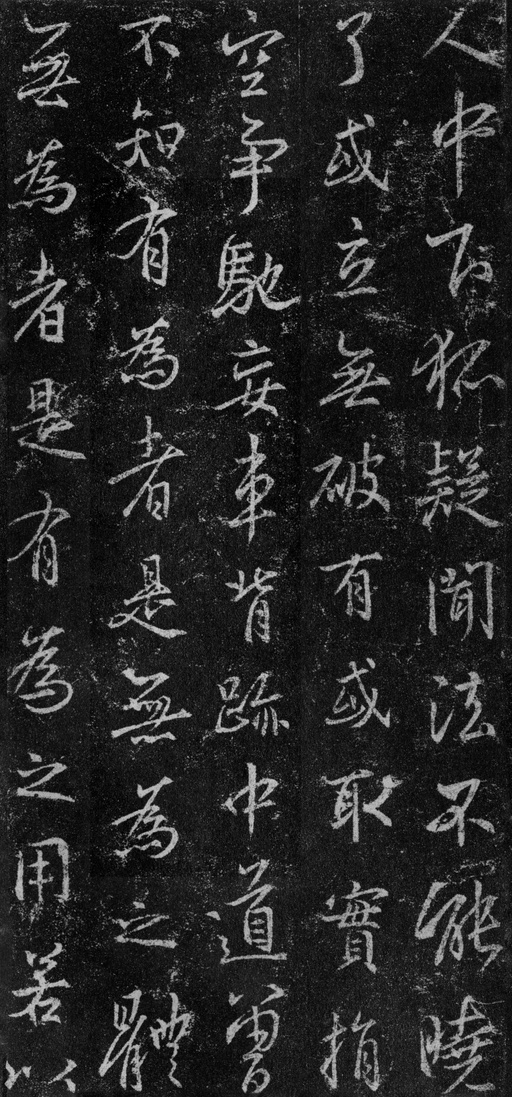 人中下狐疑聞法不能曉
了或立無破有或取實捐
空爭馳妄車背跡中道曾
不知有為者是無為之體
無為者是有為之用若以